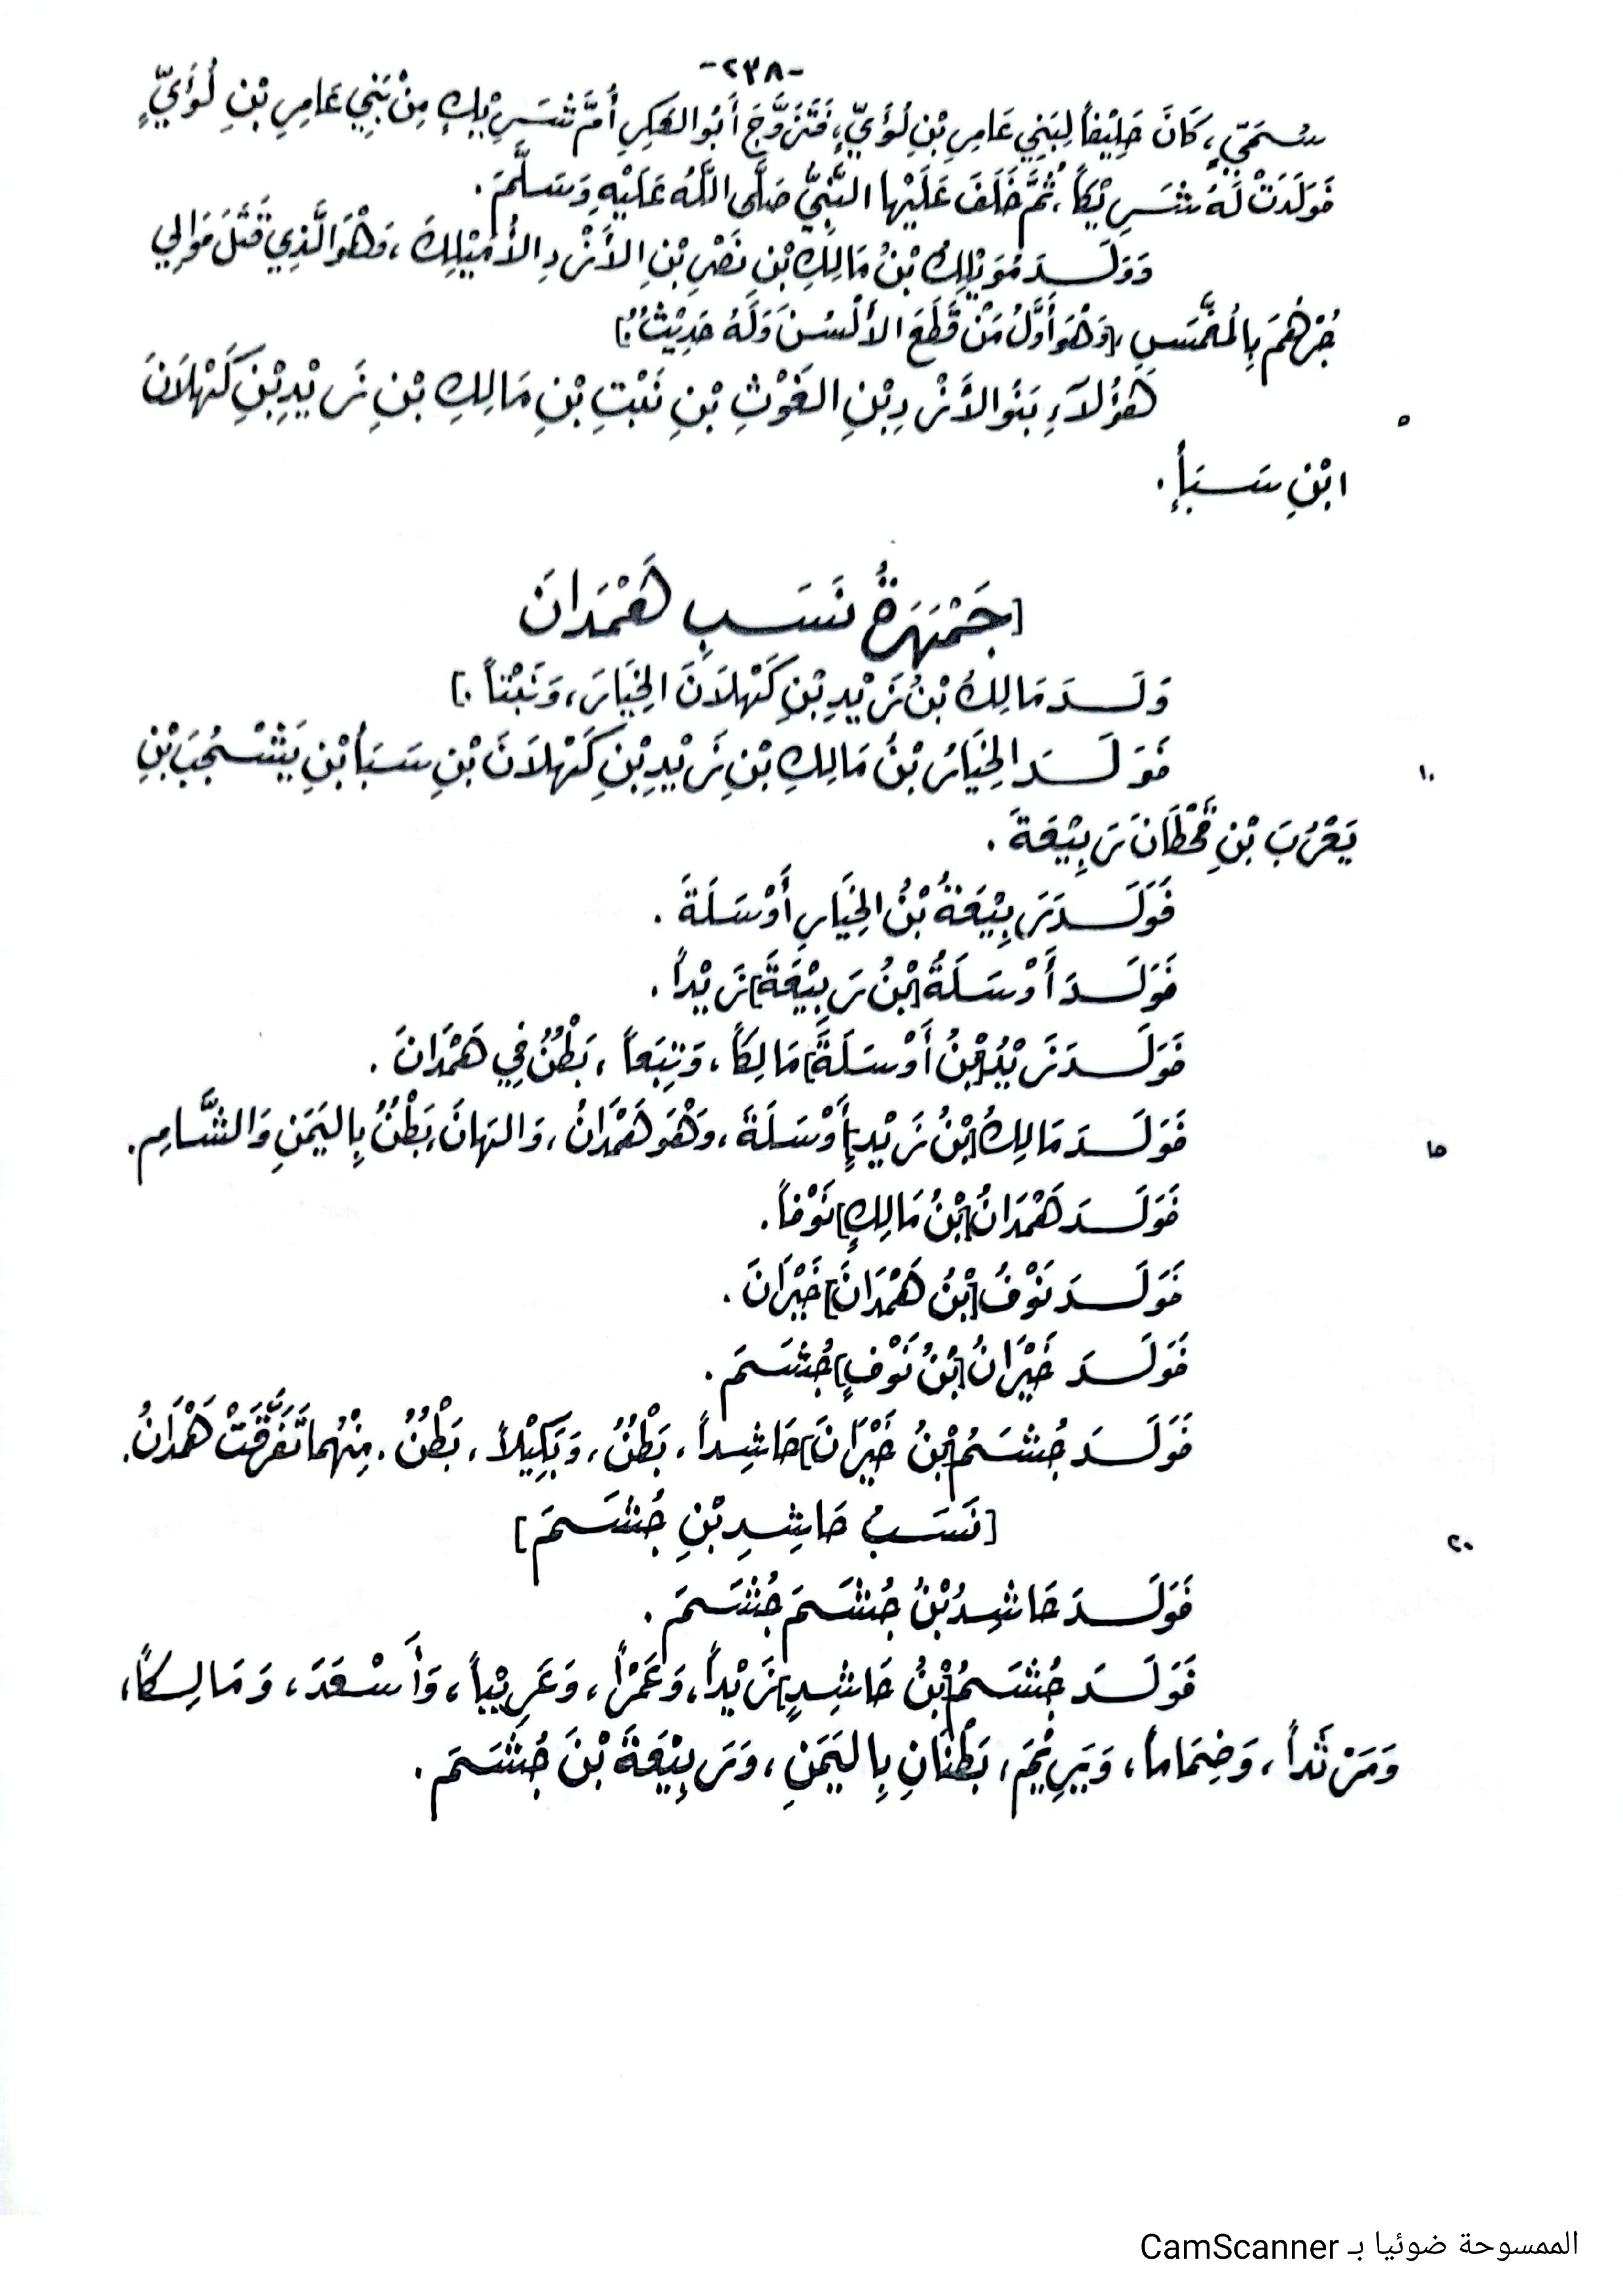 -٢٣٨-
سُمَيٍّ، كَانَ حَلِيْفاً لِبَنِي عَامِرِ بْنِ لُؤَيٍّ، فَتَزَوَّجَ أَبُو العَكِرِ أُمَّ شَرِيْكٍ مِنْ بَنِي عَامِرِ بْنِ لُؤَيٍّ
فَوَلَدَتْ لَهُ شَرِيْكاً، ثُمَّ خَلَفَ عَلَيْهَا النَّبِيُّ صَلَّى اللَّهُ عَلَيْهِ وَسَلَّمَ.
وَوَلَدَ مُوَيْلِكُ بْنُ مَالِكِ بْنِ نَصْرِ بْنِ الأَزْدِ الأُمَيْلِكَ، وَهْوَ الَّذِي قَتَلَ مَوَالِي
جُرْهُمَ بِالمُغَمَّسِ، [وَهْوَ أَوَّلُ مَنْ قَطَعَ الأَلْسُنَ وَلَهُ حَدِيْثٌ.]
هَؤُلَآءِ بَنُو الأَزْدِ بْنِ الغَوْثِ بْنِ نَبْتِ بْنِ مَالِكِ بْنِ زَيْدِ بْنِ كَهْلَانَ ٥
ابْنِ سَبَأٍ.
[جَمْهَرَةُ نَسَبِ هَمْدَانَ
وَلَدَ مَالِكُ بْنُ زَيْدِ بْنِ كَهْلَانَ الخِيَارَ، وَنَبْتاً.]
فَوَلَدَ الخِيَارُ بْنُ مَالِكِ بْنِ زَيْدِ بْنِ كَهْلَانَ بْنِ سَبَأ بْنِ يَشْجُبَ بْنِ ١٠
يَعْرُبَ بْنِ قَحْطَانَ رَبِيْعَةَ.
فَوَلَدَ رَبِيْعَةُ بْنُ الخِيَارِ أَوْسَلَةَ.
فَوَلَدَ أَوْسَلَةُ [بْنُ رَبِيْعَةَ] زَيْداً.
فَوَلَدَ زَيْدُ [بْنُ أَوْسَلَةَ] مَالِكاً، وَتِبَعاً، بَطْنٌ فِي هَمْدَانَ.
فَوَلَدَ مَالِكُ [بْنُ زَيْدٍ] أَوْسَلَةَ، وَهْوَ هَمْدَانُ، وَالهَانَ، بَطْنٌ بِاليَمَنِ وَالشَّامِ. ١٥
فَوَلَدَ هَمْدَانُ [بْنُ مَالِكٍ] نَوْفاً.
فَوَلَدَ نَوْفُ [بْنُ هَمْدَانَ] خَيْرَانَ.
فَوَلَدَ خَيْرَانُ [بْنُ نَوْفٍ] جُشَمَ.
فَوَلَدَ جُشَمُ [بْنُ خَيْرَانَ] حَاشِداً، بَطْنٌ، وَبَكِيْلاً، بَطْنٌ. مِنْهُمَا تَفَرَّقَتْ هَمْدَانُ.
[نَسَبُ حَاشِدِ بْنِ جُشَمَ] ٢٠
فَوَلَدَ حَاشِدُ بْنُ جُشَمَ جُشَمَ.
فَوَلَدَ جُشَمُ [بْنُ حَاشِدٍ] زَيْداً، وَعَمْراً، وَعَرِيْباً، وَأَسْعَدَ، وَمَالِكاً،
وَمَرْثَداً، وَضِمَاماً، وَيَرِيْمَ، بَطْنَانِ بِاليَمَنِ، وَرَبِيْعَةَ بْنَ جُشَمَ.
الممسوحة ضوئيا بـ CamScanner